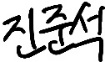 진준석